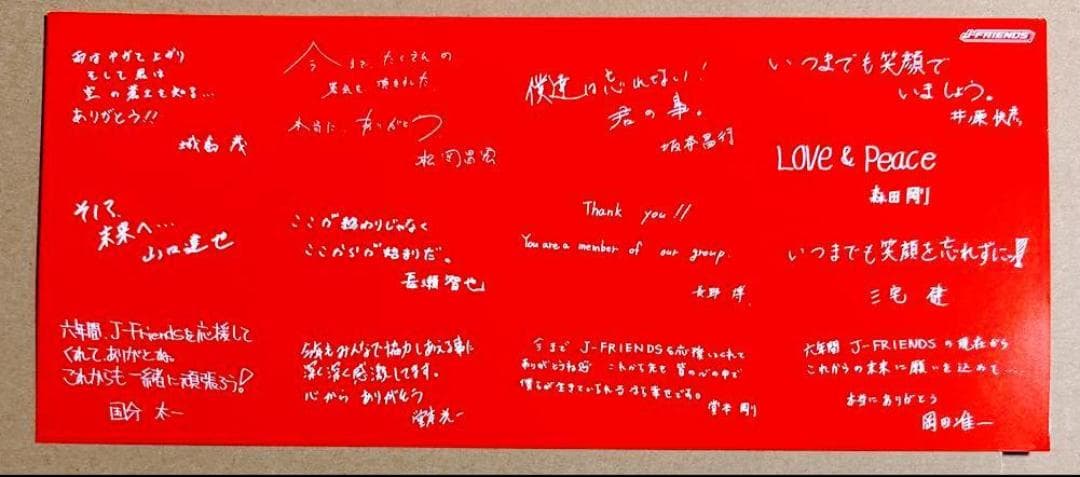 J-FRIENDS
雨はやがて上がり
そして君は
空の蒼さを知る…
ありがとう!!
城島 茂
今まで、たくさんの
勇気を頂きました。
本当に、ありがとう
松岡昌宏
僕達は忘れない!
君の事。
坂本昌行
いつまでも笑顔で
いましょう。
井ノ原快彦
LOVE & Peace
森田剛
そして、
未来へ…
山口達也
ここが終わりじゃなく
ここからが始まりだ。
長瀬智也
Thank you!!
You are a member of our group.
長野 博
いつまでも笑顔を忘れずにっ!
三宅 健
六年間、J-Friendsを応援して
くれてありがとね。
これからも一緒に頑張ろう!
国分 太一
みんなで協力しあえる事に
深く深く感謝してます。
心から ありがとう
堂本光一
今まで J-FRIENDSを応援してくれて
ありがとうね これから先も 皆の心の中で
僕らが生きていられる 幸せです。
堂本 剛
六年間 J-FRIENDSの現在から
これからの未来に願いを込めて…
本当にありがとう
岡田准一